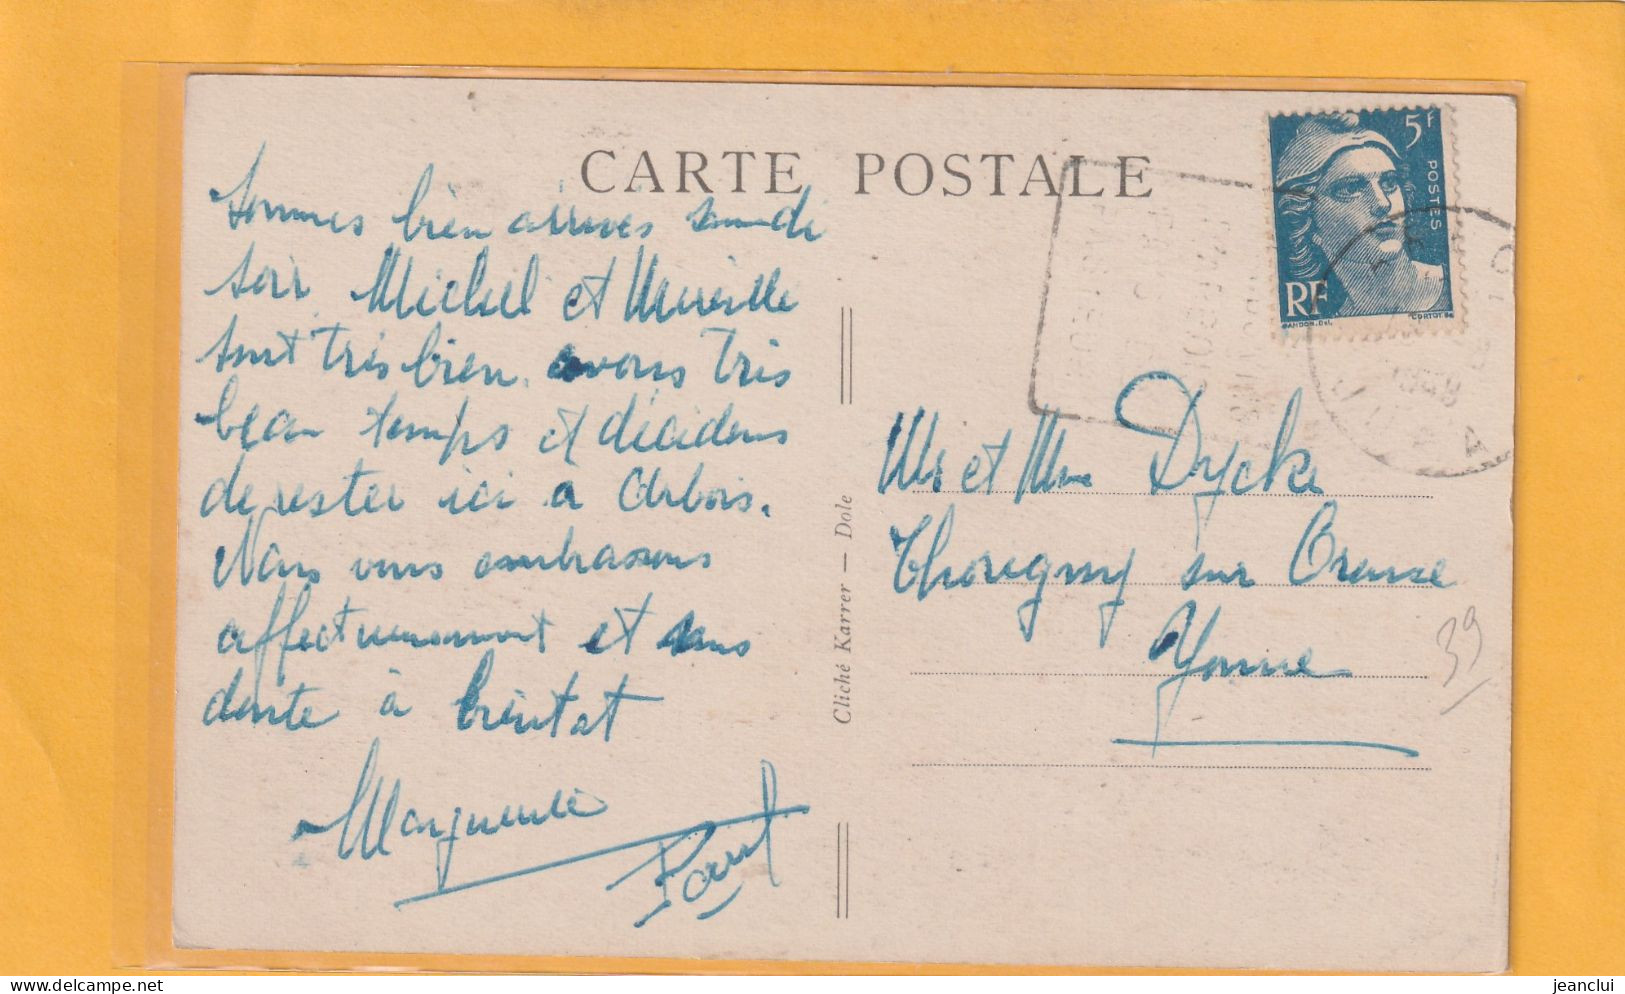 CARTE POSTALE
sommes bien arrivés samedi
soir Michel et Mireille
sont très bien. avons très
beau temps et décidons
de rester ici à Arbois.
Nous vous embrassons
affectueusement et sans
doute à bientot
Marguerite
Paul
Cliché Karrer — Dole
5F
POSTES
RF
GANDON.Del.
CORTOT.Sc
Mr et Mme Dycke
Thorigny sur Oreuse
Yonne
39
jeanclui